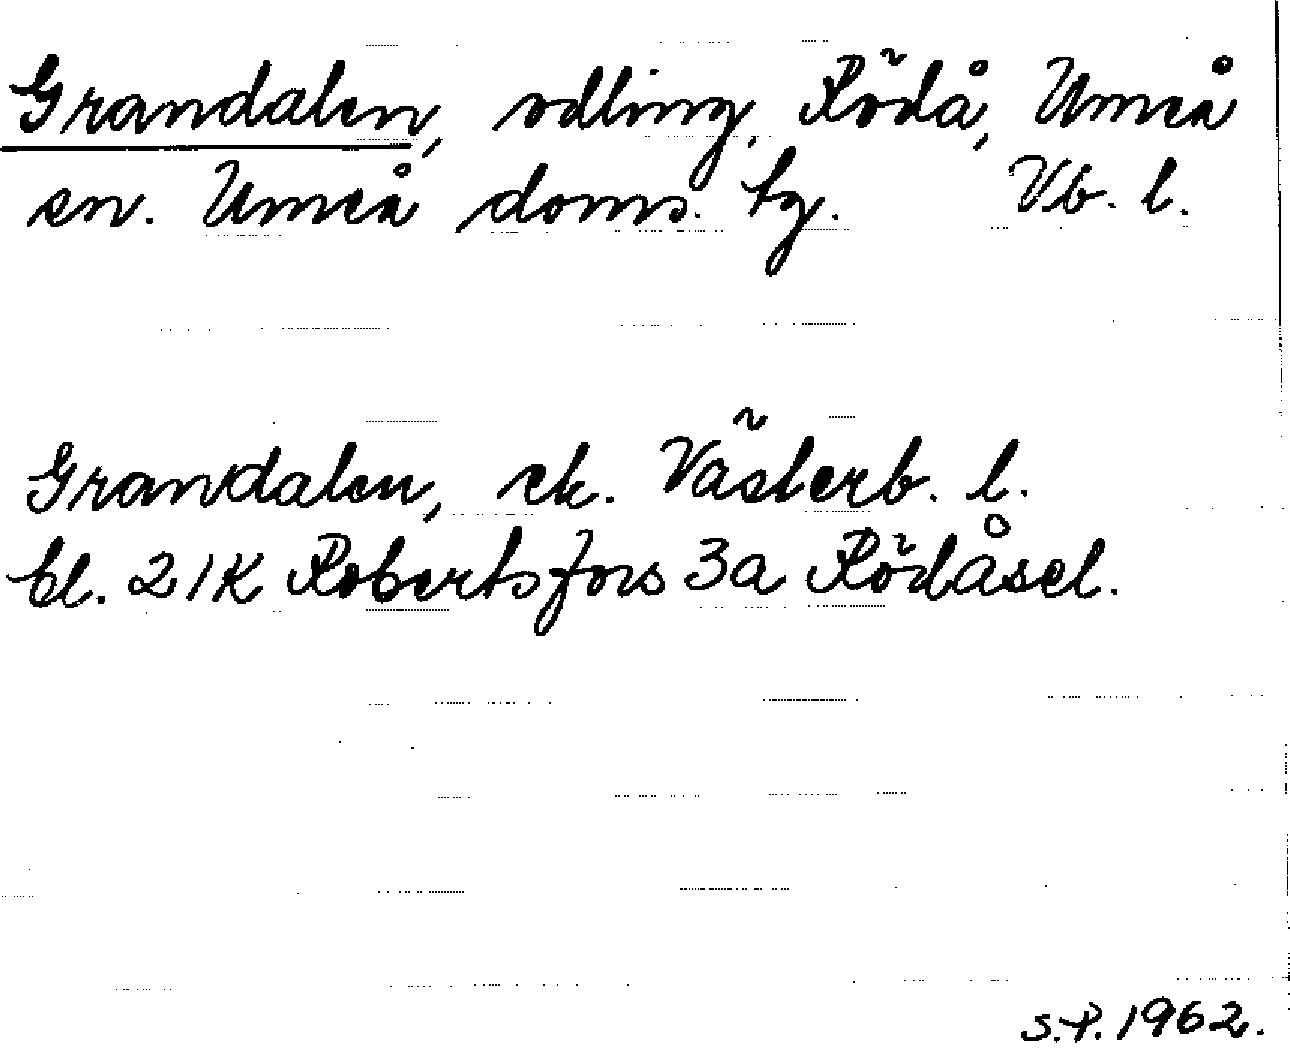 Grandalen, odling, Rödå, Umeå
sn. Umeå doms. tg. Vb. l.
Grandalen, ek. Västerb. l.
bl. 21K Robertsfors 3a Rödåsel.
S.P. 1962.